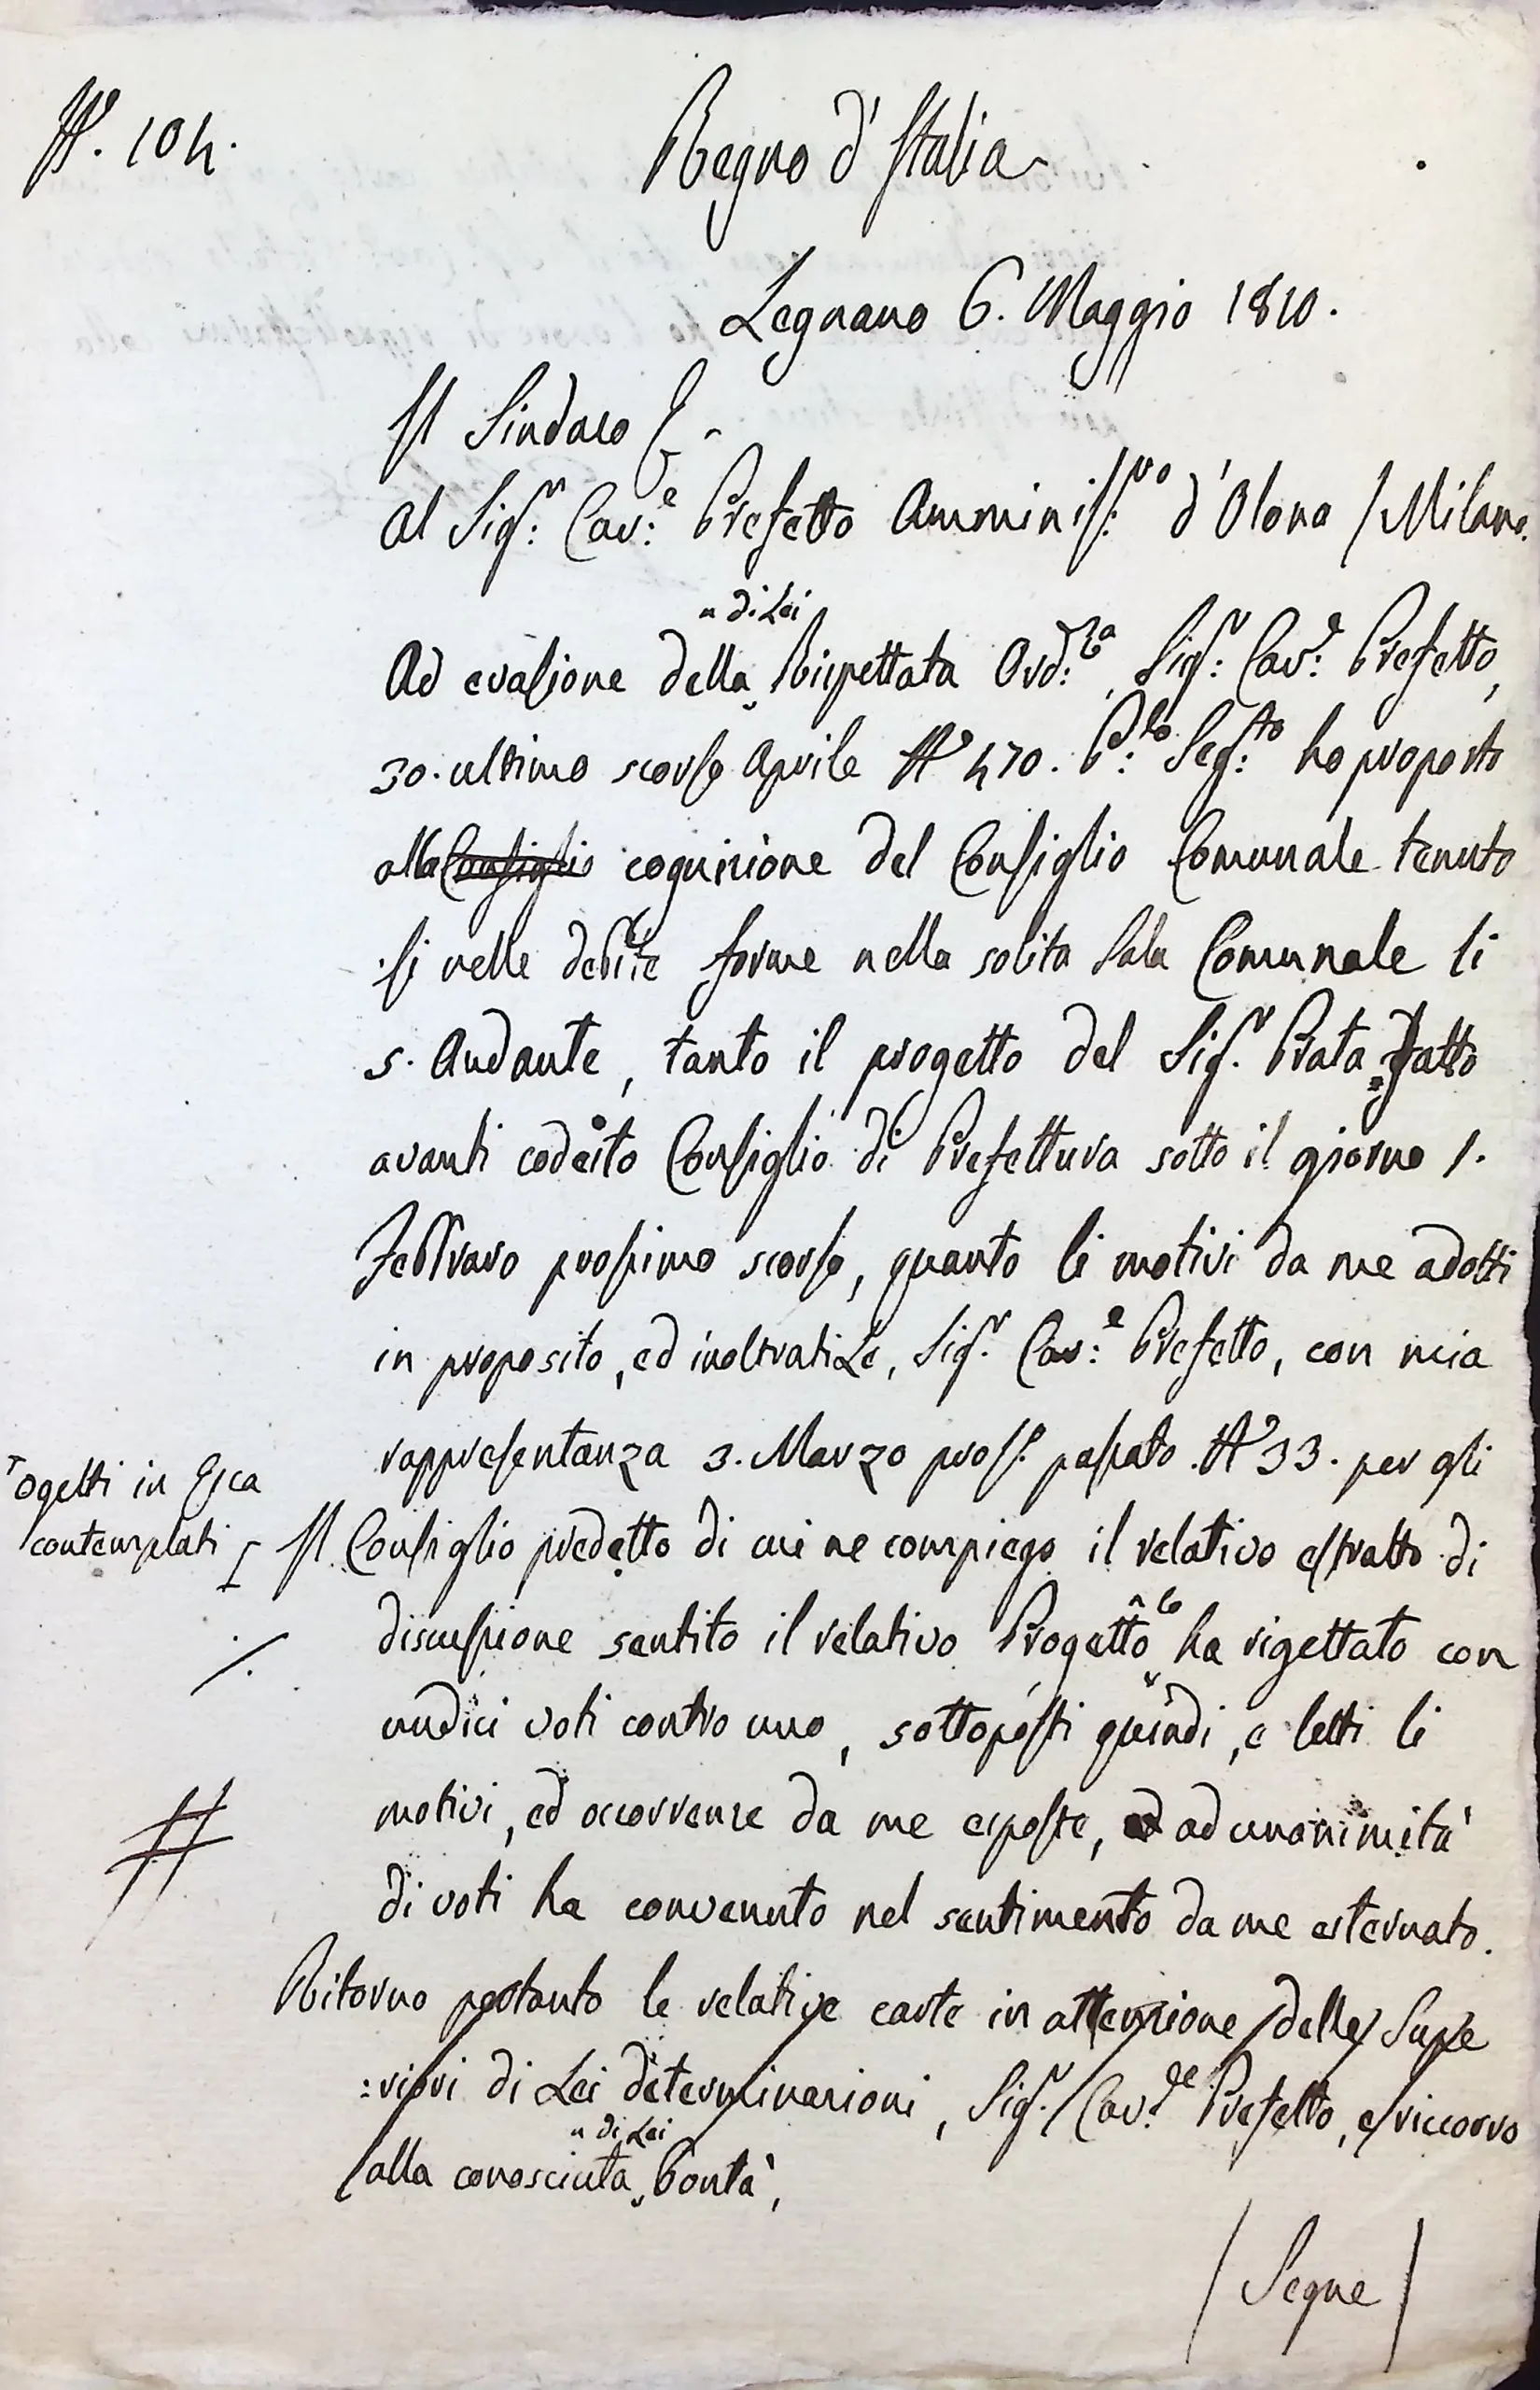 N°. 104.
Regno d'Italia
Legnano 6. Maggio 1810.
Il Sindaco
Al Sig.r Cav.e Prefetto Amminis.vo d'Olona / Milano.
" di Lei
Ad evasione della " Rispettata Ord.za, Sig.r Cav.e Prefetto,
30. ultimo scorso Aprile N° 470. P.lo Seg.to ho proposto
alla Consiglio cognizione del Consiglio Comunale tenuto
si nelle debite forme nella solita Sala Comunale li
5. Andante, tanto il progetto del Sig.r Prata fatto
avanti codesto Consiglio di Prefettura sotto il giorno 1.
Febbraro prossimo scorso, quanto li motivi da me adotti
in proposito, ed inoltratiLe, Sig.r Cav.e Prefetto, con mia
rappresentanza 3. Marzo pross.o passato N° 33. per gli
ogetti in Essa
contemplati
Il Consiglio predetto di cui ne compiego il relativo estratto di
discussione sentito il relativo Progetto lo ha rigettato con
undici voti contro uno, sottoposti quindi, e letti li
motivi, ed occorrenze da me esposte, ed ad unanimità
di voti ha convenuto nel sentimento da me esternato.
Ritorno pertanto le relative carte in attenzione delle Supe
:riori di Lei determinazioni, Sig.r Cav.re Prefetto, e riccorro
" di Lei
alla conosciuta " bontà,
/ Segue /